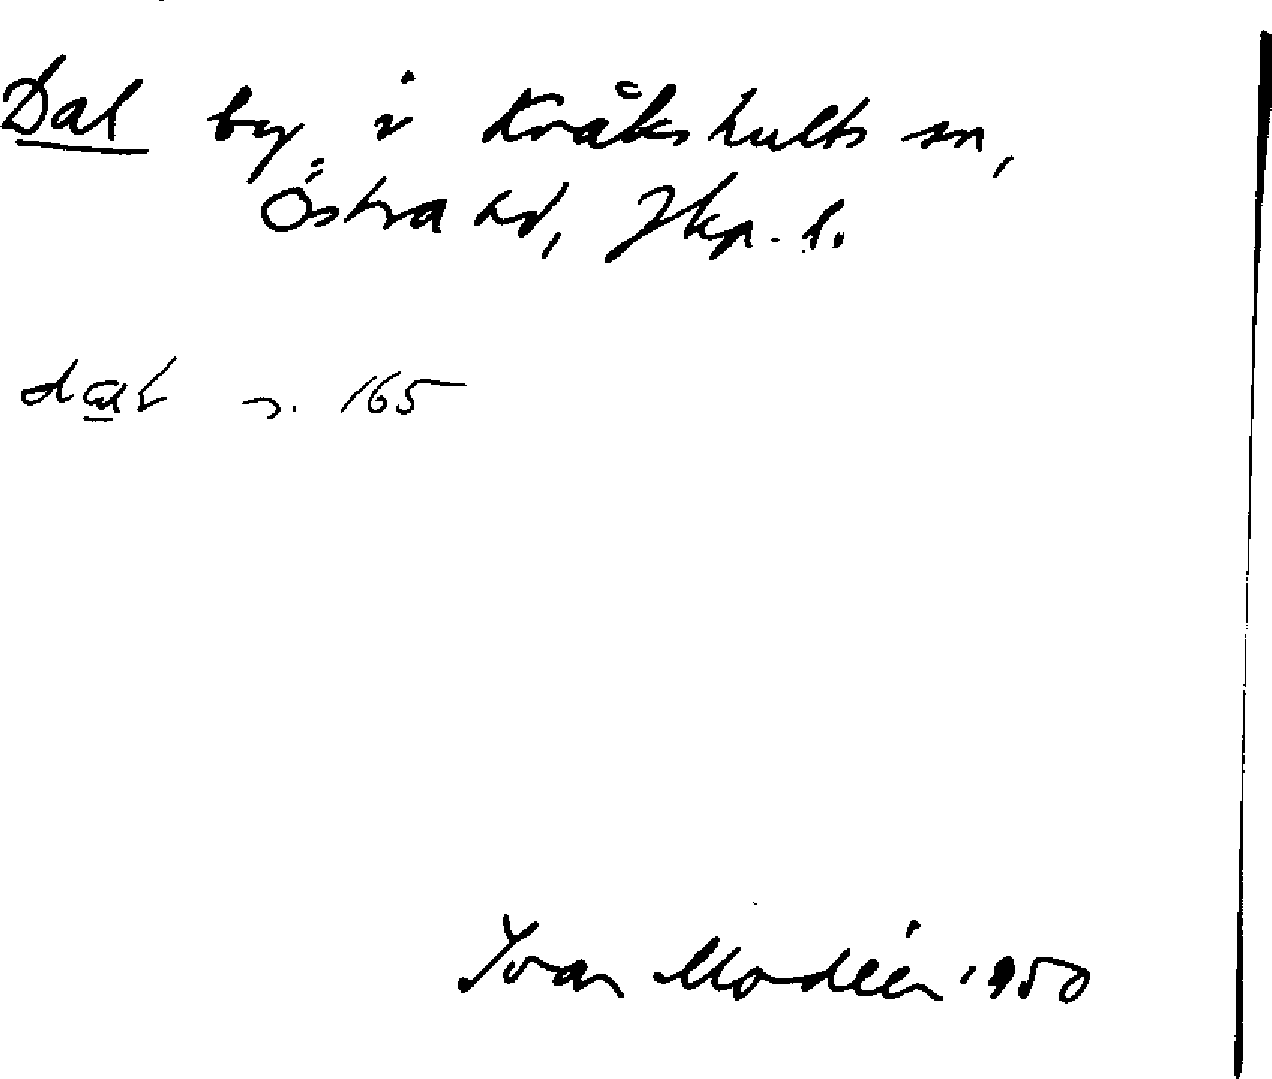 Dal by i Kråkshults sn,
Östra hd, Jkp. l.
dal s. 165
Ivar Modéer 1950